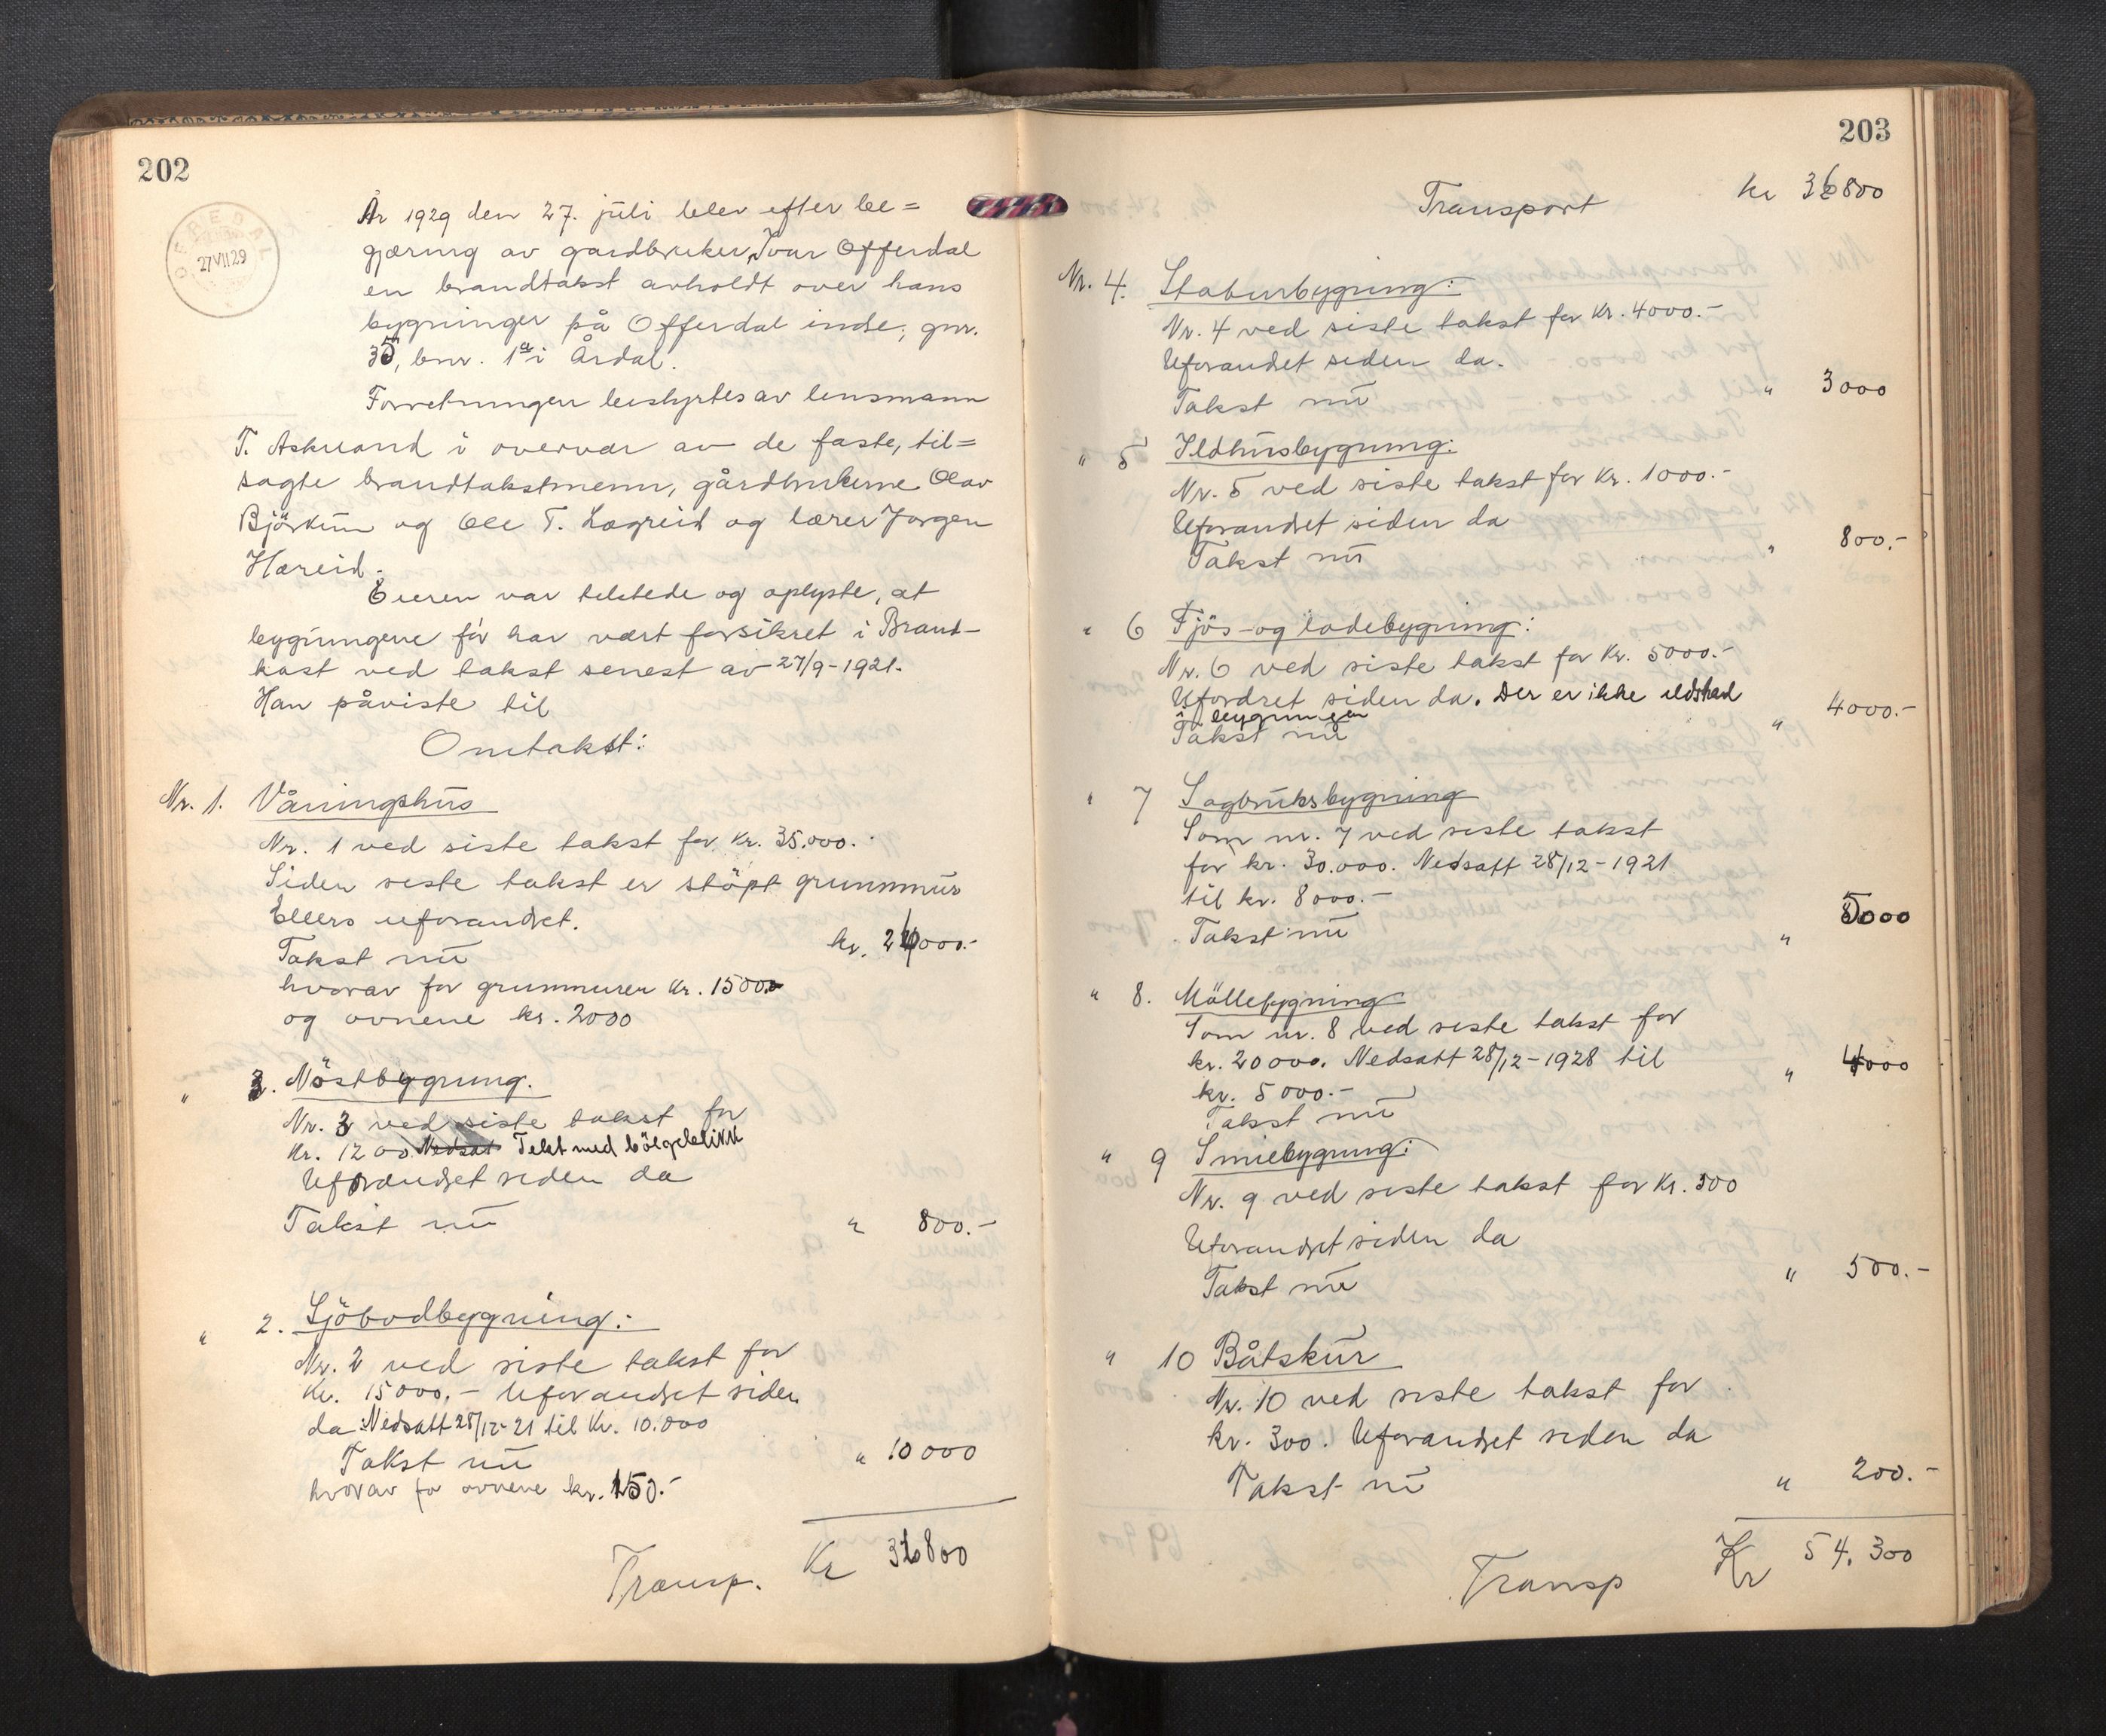 202
OFREDAL
27 VII 29
År 1929 den 27. juli blev efter be=
gjæring av gardbruker Ivar Offerdal
en brandtakst avholdt over hans
bygninger på Offerdal indre, gnr.
35, bnr. 1a i Årdal.
Forretningen bestyrtes av lensmann
T. Askeland i overvær av de faste, til=
sagte brandtakstmenn, gårdbrukerne Olav
Björkum og Ole T. Lægreid og lærer Jørgen
Hæreid.
Eieren var tilstede og oplyste, at
bygningene før har vært forsikret i Brand-
kast ved takst senest av 27/9-1921.
Han påviste til
Omtakst:
Nr. 1. Våningshus
Nr. 1 ved siste takst for Kr. 35.000.
Siden siste takst er støpt grunnmur
Ellers uforandret.
Takst nu kr. 26000.-
hvorav for grunnmuren kr. 1500
og ovnene kr. 2000
" 3. Nöstbygning.
Nr. 3 ved siste takst for
Kr. 1200. Nedsat Tekt med bölgeblikk
Uforandret siden da
Takst nu " 800.-
" 2. Sjöbodbygning:
Nr. 2 ved siste takst for
Kr. 15000.- Uforandret siden
da. Nedsatt 28/12-21 til Kr. 10.000
Takst nu " 10000
hvorav for ovnene kr. 150.-
Transp. Kr 36800
203
Transport kr 36800
Nr. 4. Staburbygning:
Nr. 4 ved siste takst for Kr. 4000.-
Uforandret siden da.
Takst nu " 3000
" 5 Ildhusbygning:
Nr. 5 ved siste takst for Kr. 1000.-
Uforandret siden da
Takst nu " 800.-
" 6 Fjös-og ladebygning:
Nr. 6 ved siste takst for Kr. 5000.-
Ufordret siden da. Der er ikke ildsted
i bygningen
Takst nu " 4000.-
" 7 Sagbruksbygning
Som nr. 7 ved siste takst
for kr. 30.000. Nedsatt 28/12-1921
til kr. 8000.-
Takst nu " 5000
" 8. Möllebygning
Som nr. 8 ved siste takst for
kr. 20000. Nedsatt 28/12-1928 til
kr. 5000.-
Takst nu " 4000
" 9 Smiebygning:
Nr. 9 ved siste takst for Kr. 500
Uforandret siden da
Takst nu " 500.-
" 10 Båtskur
Nr. 10 ved siste takst for
kr. 300. Uforandret siden da
Takst nu " 200.-
Transp Kr 54.300